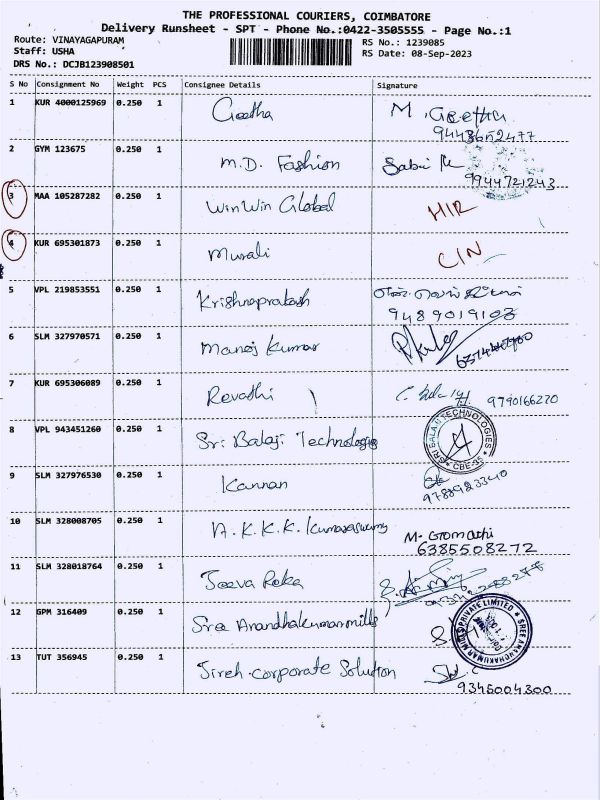 THE PROFESSIONAL COURIERS, COIMBATORE
Delivery Runsheet - SPT - Phone No.:0422-3505555 - Page No.:1
Route: VINAYAGAPURAM
RS No.: 1239085
Staff: USHA
RS Date: 08-Sep-2023
DRS No.: DCJB123908501
S No Consignment No Weight PCS Consignee Details Signature
1 KUR 4000125969 0.250 1 Geetha M. Geetha
9443652477
2 GYM 123675 0.250 1 M.D. Fashion
9944721243
3 MAA 105287282 0.250 1 WinWin Global HIR
4 KUR 695301873 0.250 1 Murali CIN
5 VPL 219853551 0.250 1 Krishnaprakash
9489019103
6 SLM 327970571 0.250 1 Manoj Kumar
7 KUR 695306089 0.250 1 Revathi 9790166270
8 VPL 943451260 0.250 1 Sri Balaji Technologies
SRI BALAJI TECHNOLOGIES
9 SLM 327976530 0.250 1 Kannan
9788923340
10 SLM 328008705 0.250 1 A.K.K.K. Kumarasuwamy M. Gomathi
6385508272
11 SLM 328018764 0.250 1 Jeeva Reka
12 GPM 316409 0.250 1 Sree Anandhakumarmills
SREE ANANDHAKUMAR MILLS PRIVATE LIMITED
13 TUT 356945 0.250 1 Jireh-corporate Solution
9345004300